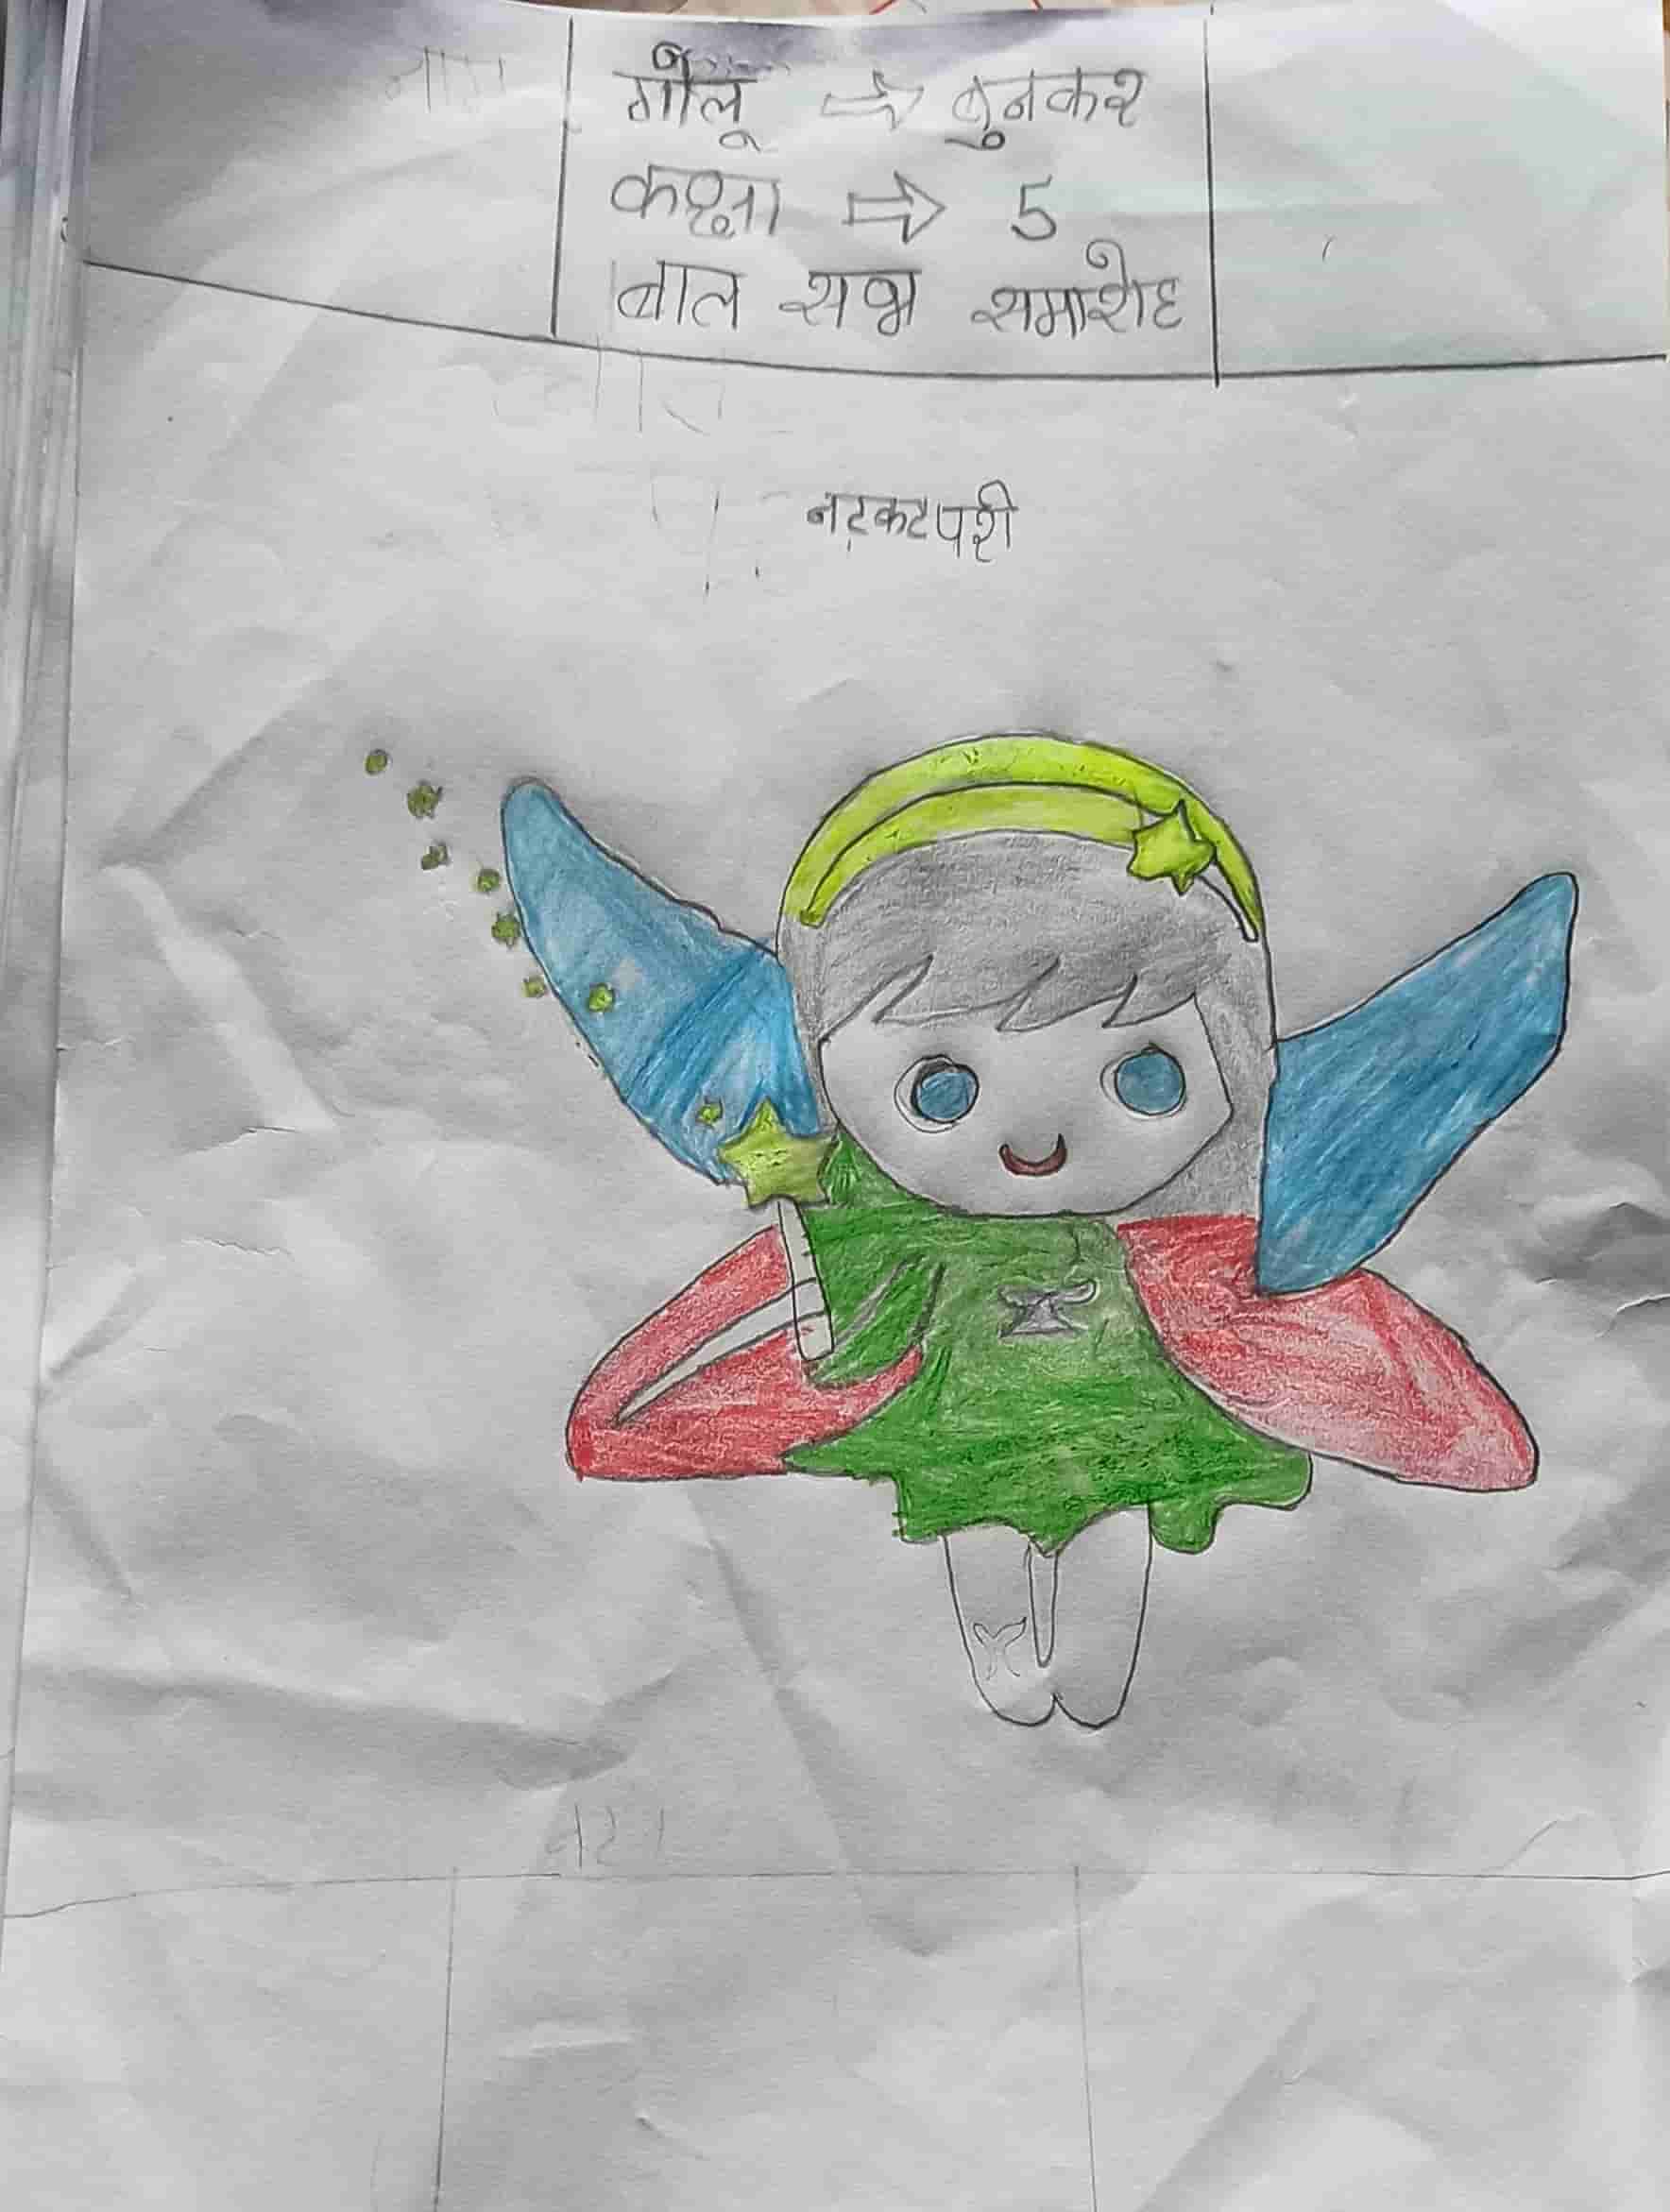 गोलू ⇒ बुनकर
कक्षा ⇒ 5
बाल सभा समारोह
नटकट परी